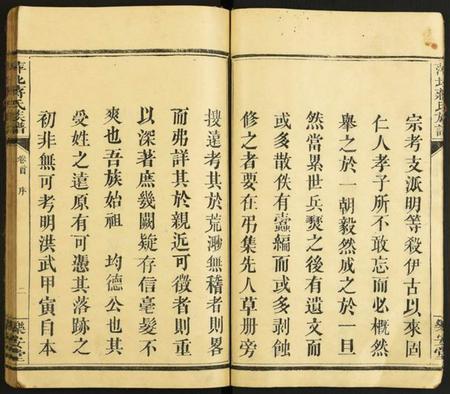 萍北蔣氏族譜
樂安堂
宗考支派明等殺伊古以來固
仁人孝子所不敢忘而必概然
舉之於一朝毅然成之於一旦
然當累世兵燹之後有遺文而
或多散佚有蠹編而或多剥蝕
修之者要在弔集先人草册旁
搜遠考其於荒渺無稽者則畧
而弗詳其於親近可徵者則重
以深著庶幾闕疑存信毫髮不
爽也吾族始祖 均德公也其
受姓之遠原有可憑其落跡之
初非無可考明洪武甲寅自本
萍北蔣氏族譜
卷首 序
二
樂安堂